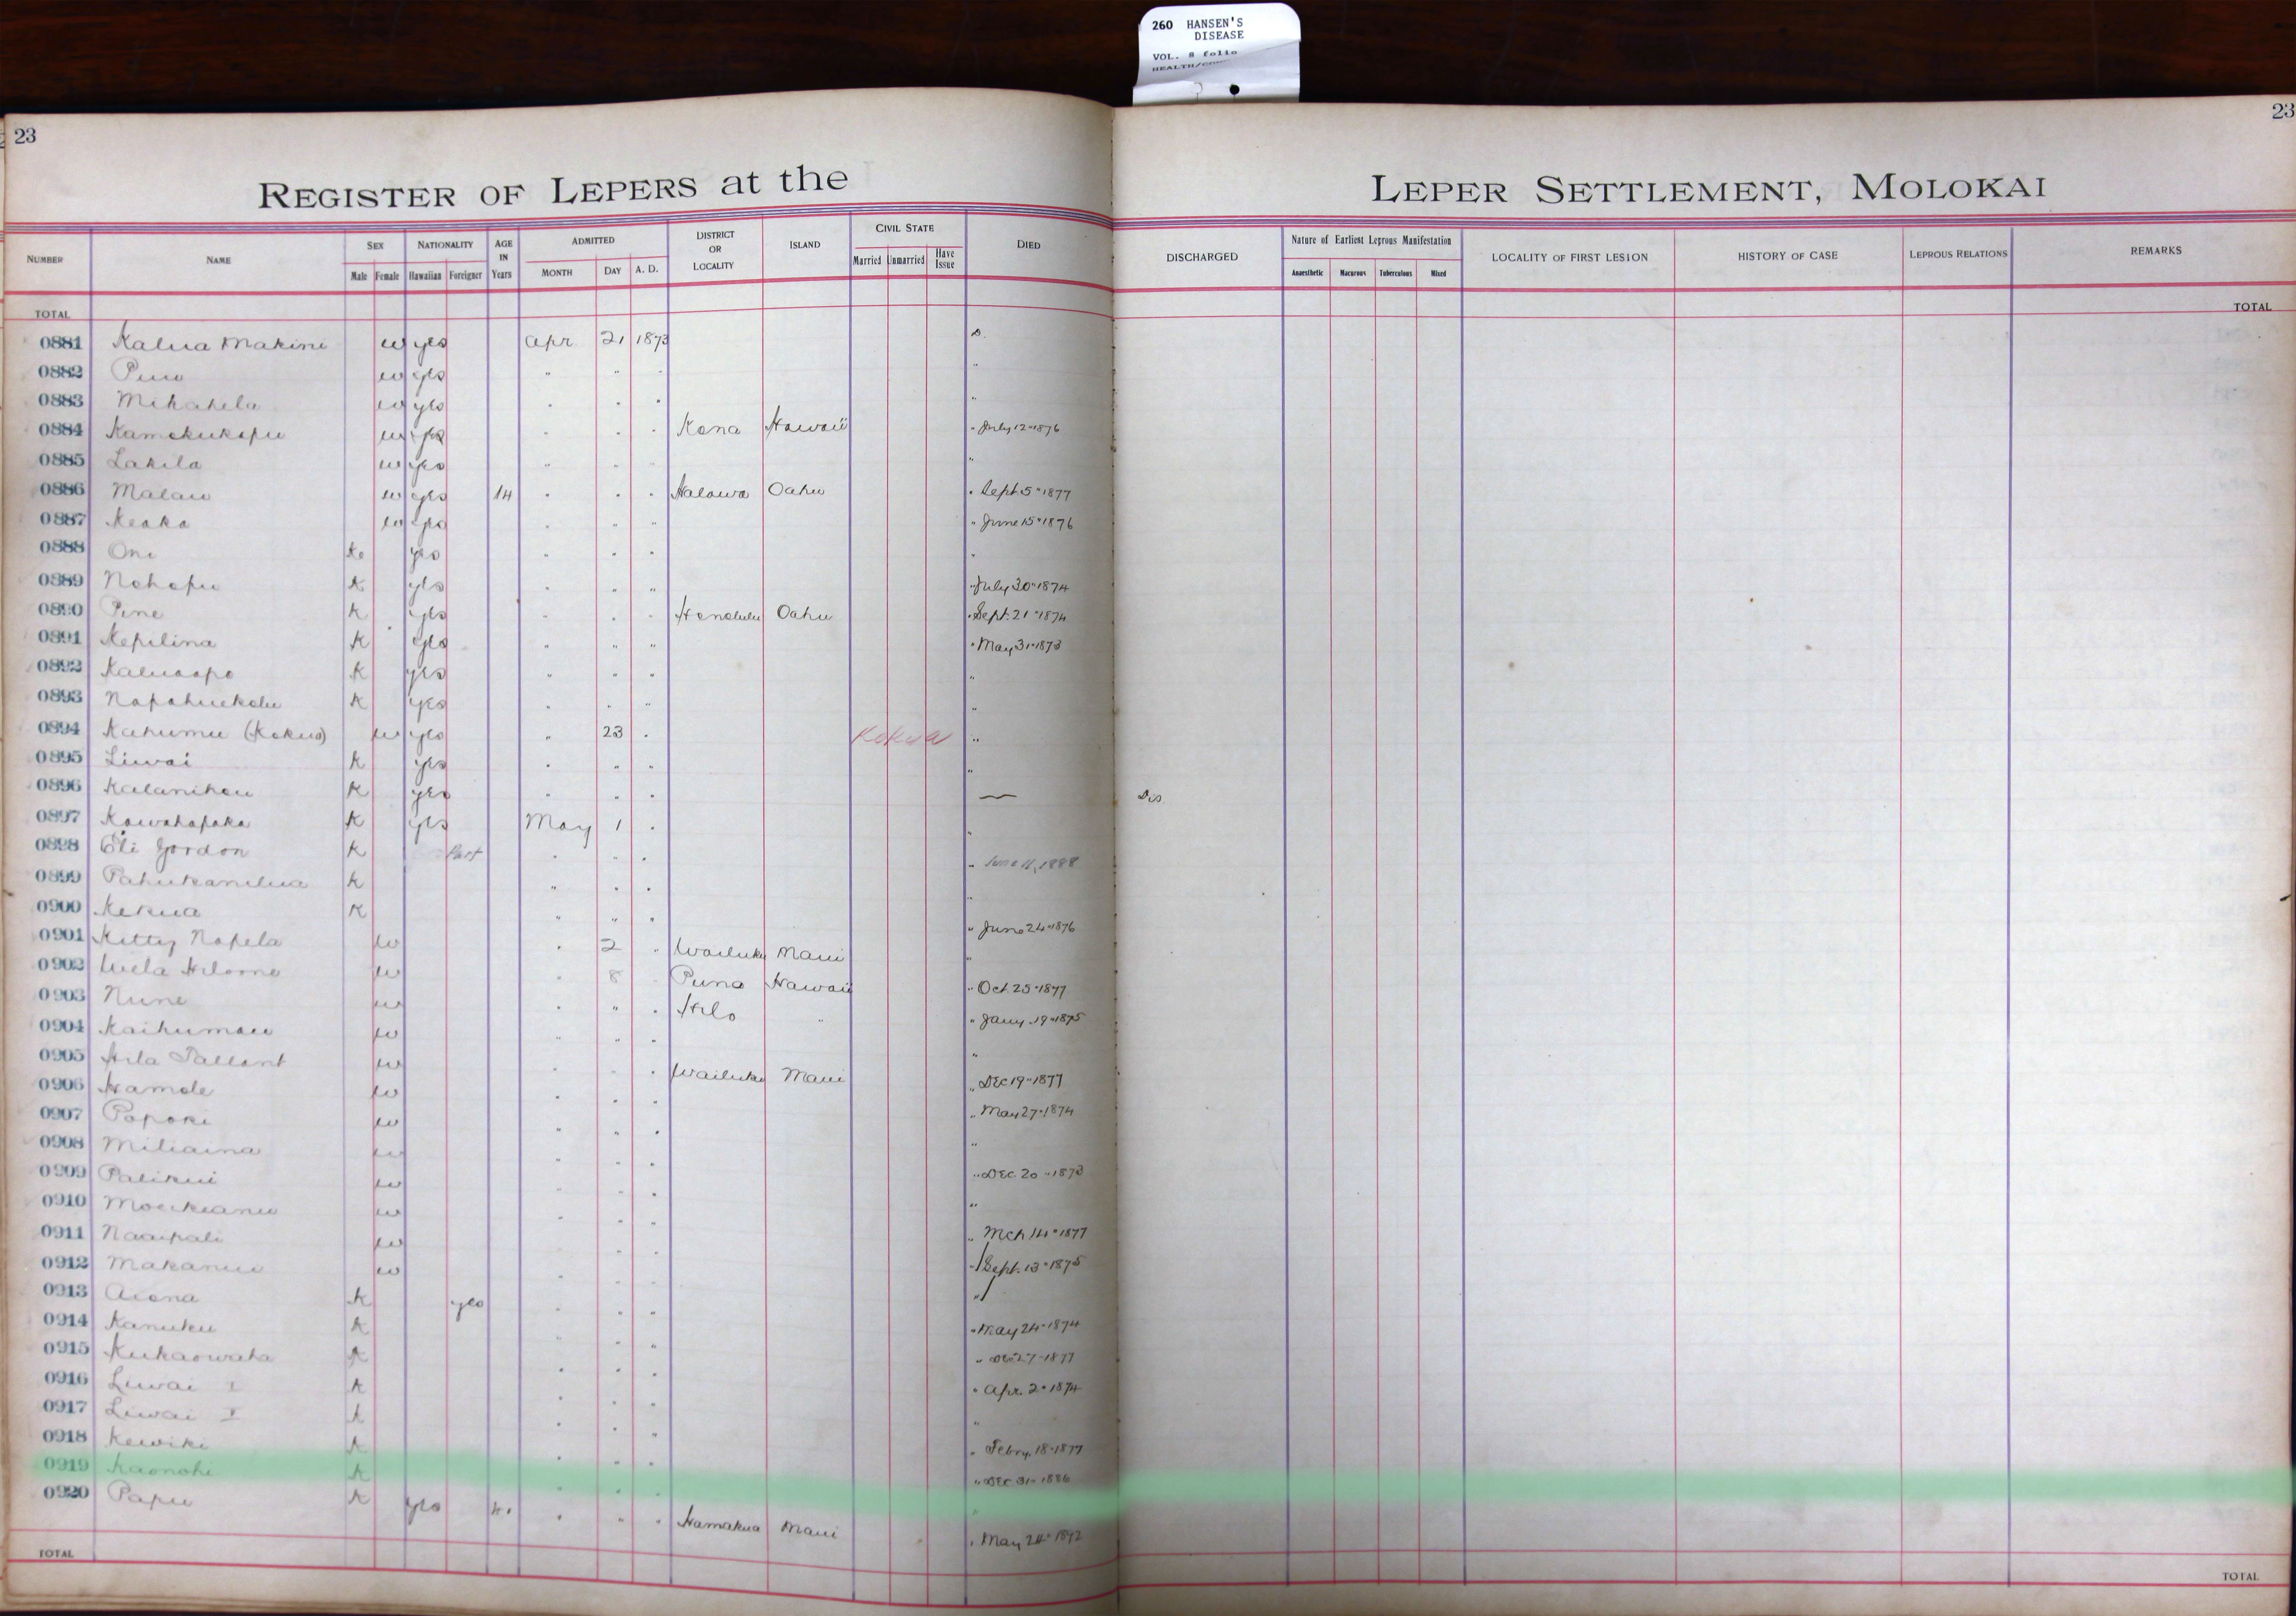 260 HANSEN'S
DISEASE
VOL. 8 folio
23
23
REGISTER OF LEPERS at the LEPER SETTLEMENT, MOLOKAI
NUMBER NAME SEX NATIONALITY AGE IN Years ADMITTED DISTRICT OR LOCALITY ISLAND CIVIL STATE DIED DISCHARGED Nature of Earliest Leprous Manifestation LOCALITY OF FIRST LESION HISTORY OF CASE LEPROUS RELATIONS REMARKS
Male Female Hawaiian Foreigner MONTH DAY A. D. Married Unmarried Have Issue Anaesthetic Macurous Tuberculous Mixed
TOTAL TOTAL
0881 Kalua Makini w yes Apr 21 1873 D.
0882 w yes " " " "
0883 Mikahela w yes " " " "
0884 Kamokukapu w yes " " " Kona Hawaii " July 12 " 1876
0885 Lakila w yes " " " "
0886 Malau w yes 14 " " " Halawa Oahu " Sept. 5 " 1877
0887 Keaka w yes " " " " June 15 " 1876
0888 Oni K yes " " " "
0889 Nohopu K yes " " " " July 30 " 1874
0890 Pine K yes " " " Honolulu Oahu " Sept. 21 " 1874
0891 Kepilina K yes " " " " May 31 " 1873
0892 Kaluaopo K yes " " " "
0893 Napahuekolu K yes " " " "
0894 Kahumu (Kokua) w yes " 23 " Kokua "
0895 Liwai K yes " " " "
0896 Kalanihou K yes " " " — Dis
0897 Kawahapaka K yes May 1 " "
0898 Eli Gordon K Part " " " " June 11, 1888
0899 Pahukanilua K " " " "
0900 Kekua K " " " " June 24 " 1876
0901 Kitty Napela w " 2 " Wailuku Maui "
0902 w " 8 " Puna Hawaii " Oct. 25 " 1877
0903 Nune w " " " Hilo " " Jany. 19 " 1875
0904 Kaihumau w " " " "
0905 w " " " Wailuku Maui " Dec 19 " 1877
0906 Hamole w " " " " May 27 " 1874
0907 Papoki w " " " "
0908 Miliaina w " " " " Dec. 20 " 1873
0909 Palikui w " " " "
0910 w " " " " Mch 14 " 1877
0911 Naaipali w " " " " Sept. 13 " 1875
0912 Makanui w " " " "
0913 Aiona K yes " " " " May 24 " 1874
0914 Kanuku K " " " " Dec 27 " 1877
0915 Kukaowaha K " " " " Apr. 2 " 1874
0916 Liwai I K " " " "
0917 Liwai K " " " " Febry. 18 " 1877
0918 Kewiki K " " " " Dec. 31 " 1886
0919 Kaonohi K " " " "
0920 Papu K yes " " " Hamakua Maui " May 24 " 1892
TOTAL TOTAL